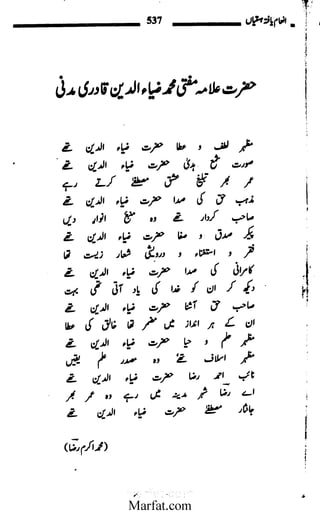 انعام یافتہ ہستیاں 537
حضرت علامہ مفتی محمد ضیاء الدین قادری مدنی
مظہر لطف و عطا حضرت ضیاء الدین تھے
صورت شمع ہدیٰ حضرت ضیاء الدین تھے
عمر بھر تبلیغ عشق مصطفےٰ کرتے رہے
مذہب حق کی صدا حضرت ضیاء الدین تھے
صاحب کردار تھے وہ منبع انوار دیں
پیکر صدق و صفا حضرت ضیاء الدین تھے
فقر و استغناء و درویشی شعار زیست تھا
کامرانی کی صدا حضرت ضیاء الدین تھے
دیکھ کر ان کو خدا کی یاد آتی تھی بہت
صاحب حق آشنا حضرت ضیاء الدین تھے
ان کے ہر انداز میں مضمر تھا خالق کی عطا
مظہر علم و حیا حضرت ضیاء الدین تھے
مظہر اسلاف تھے وہ مصدر علم یقیں
نائب احمد رضا حضرت ضیاء الدین تھے
اے رضا شہر مدینہ میں رہے وہ عمر بھر
جانثار مصطفےٰ حضرت ضیاء الدین تھے
(محمد اکرم رضا)
Marfat.com